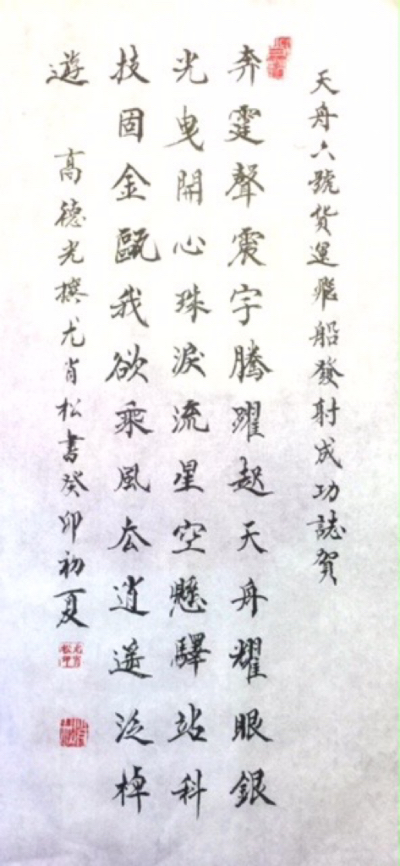 天舟六號货運飛船發射成功誌賀
奔霆聲震宇騰躍起天舟耀眼銀
光曳開心珠淚流星空懸驛站科
技固金甌我欲乘風去逍遥泛棹
遊 高德光撰尤肖松書癸卯初夏